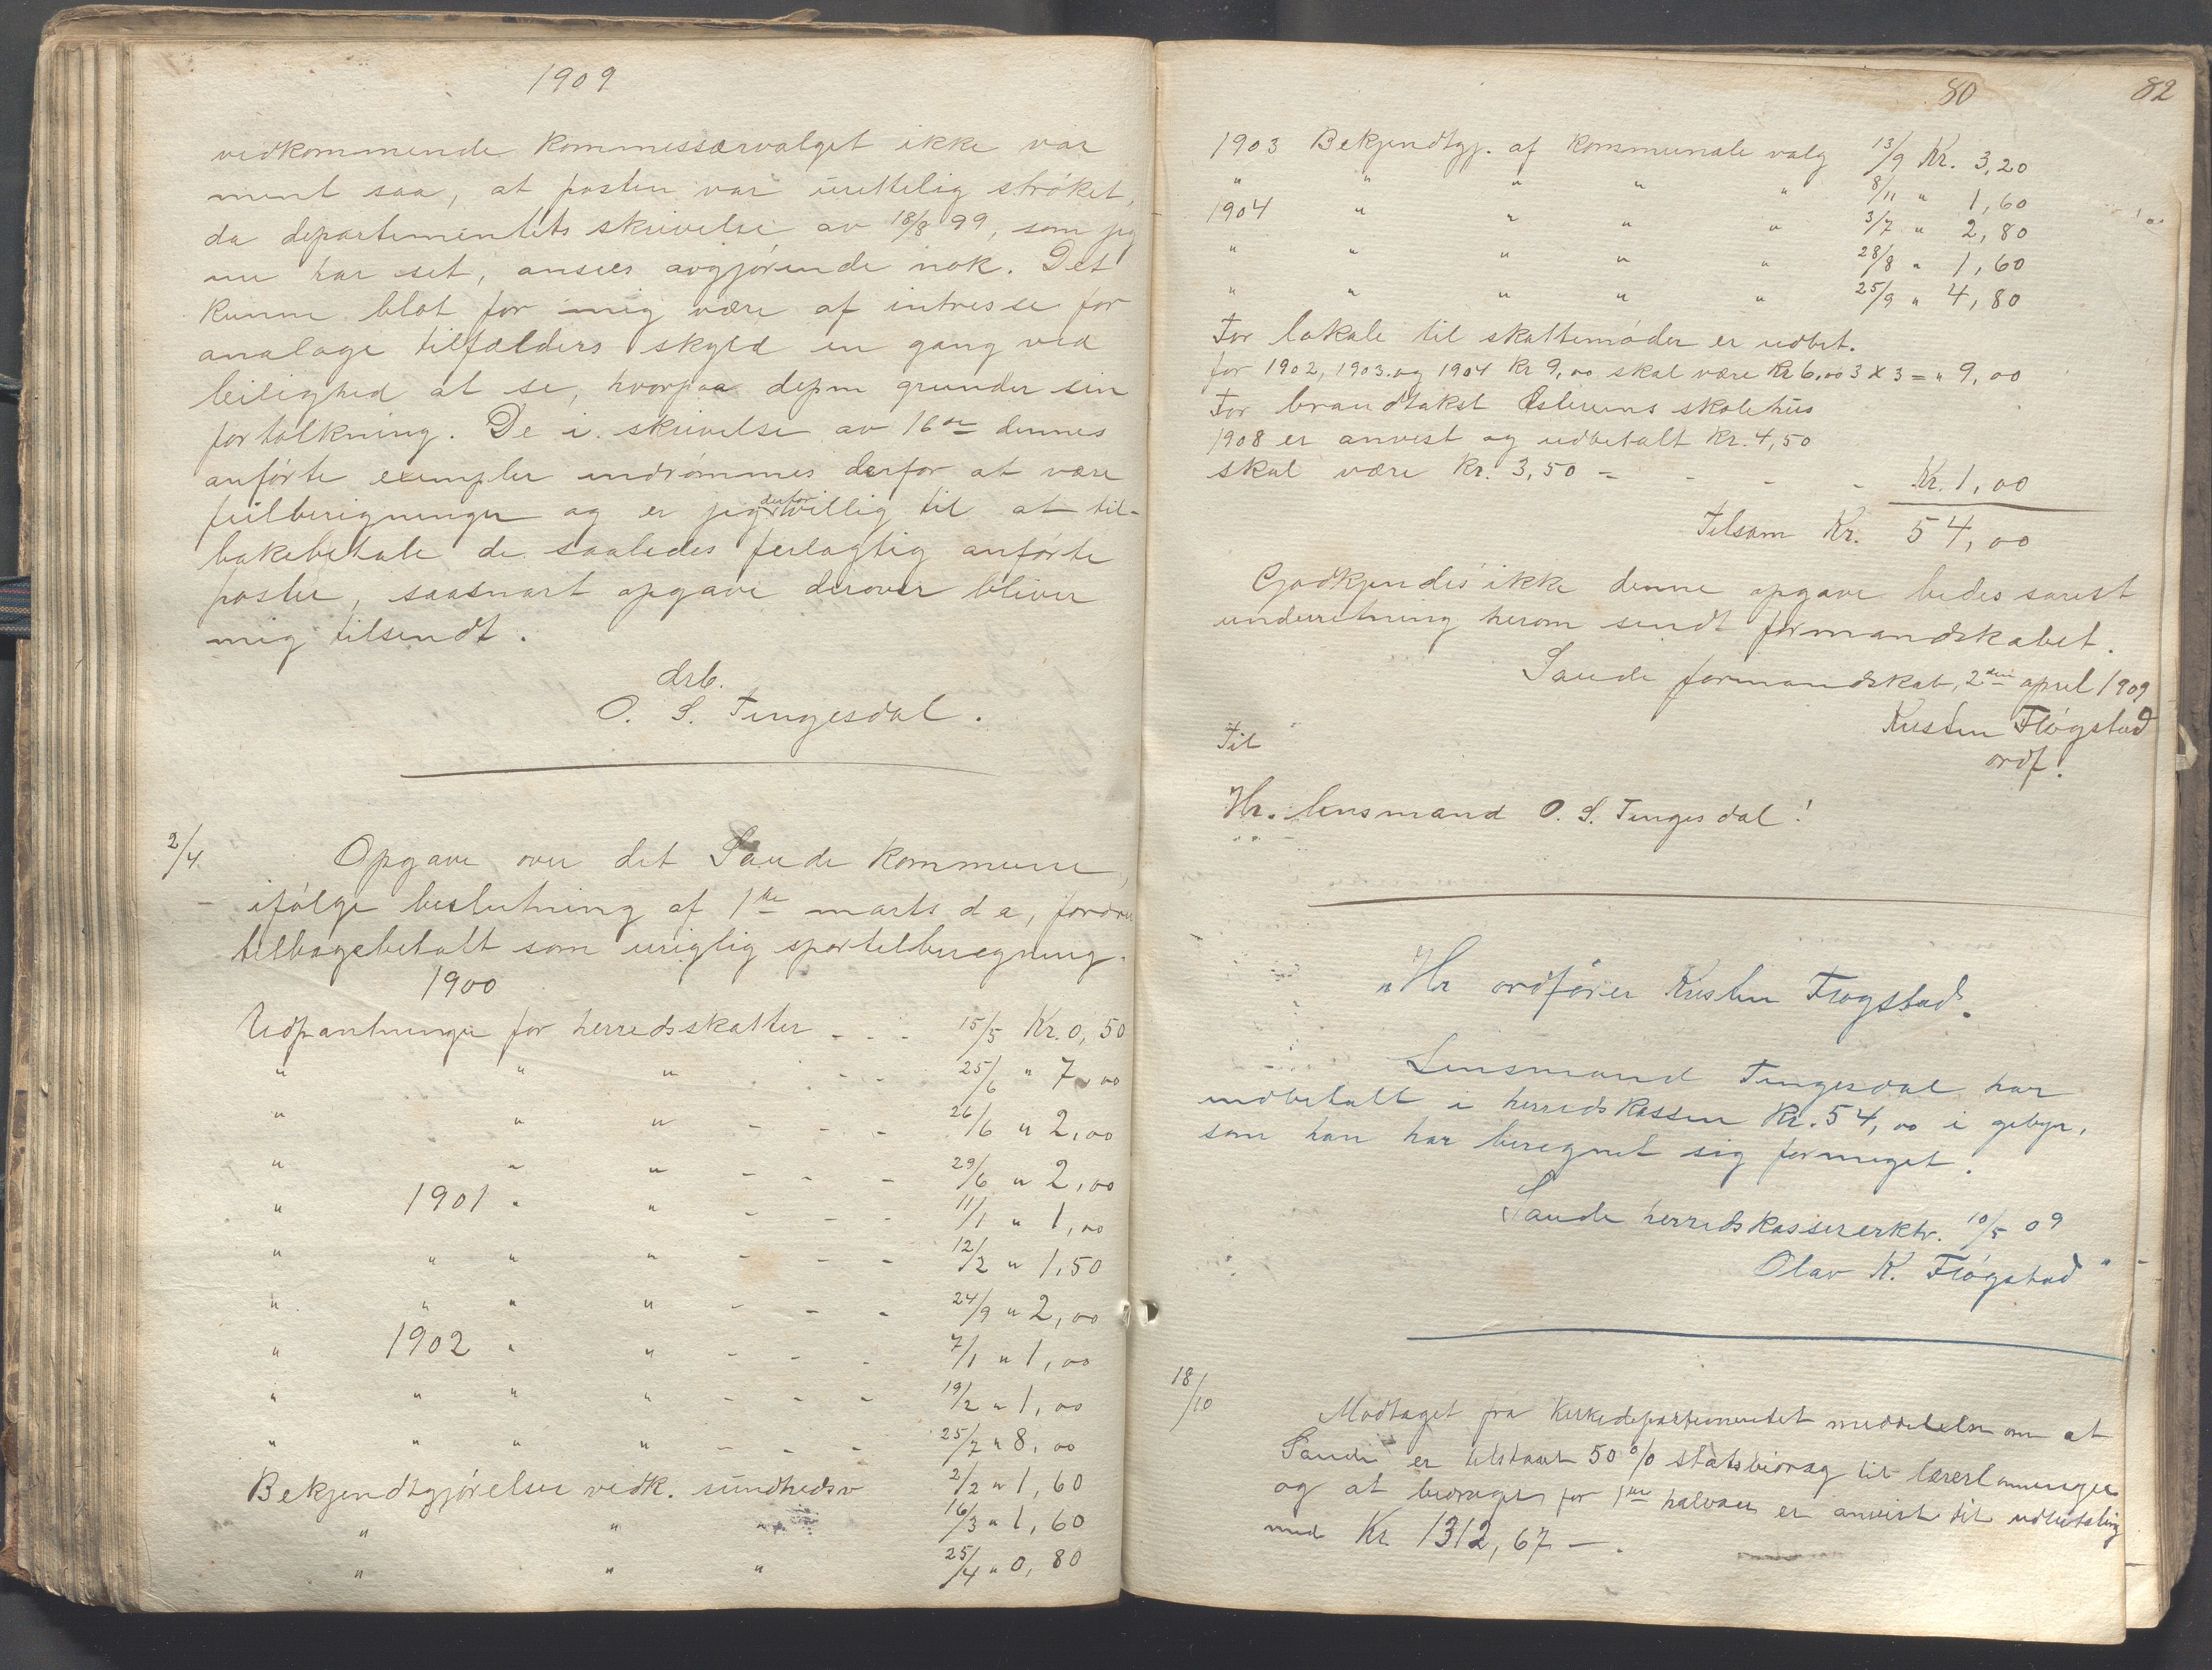 1909
vedkommende kommessærvalget ikke var
ment saa, at posten var urettelig strøket,
da departementets skrivelse av 18/8 99, som jeg
nu har set, ansees avgjørende nok. Det
kunne blot for mig være af intresse for
analoge tilfælders skyld en gang ved
leilighed at se, hvorpaa depm grunder sin
fortolkning. De i skrivelse av 16de dennes
anførte exempler indrømmes derfor at være
feilberigninger og er jeg derfor villig til at til-
bakebetale de saaledes feilagtig anførte
poster, saasnart opgave derover bliver
mig tilsendt.
drb.
O. S. Tengesdal.
2/4 Opgave over det Saude kommune,
ifølge beslutning af 1ste marts d a, fordrer
tilbagebetalt som urigtig sportelberegning.
1900
Udpantninger for herredsskatter - - - 15/5 Kr. 0,50
" " " - - - 25/6 " 7,00
" " " - - - 26/6 " 2,00
" " " - - - 29/6 " 2,00
" 1901 " " - - - 11/1 " 1,00
" " " " - - - 12/2 " 1,50
" " " " - - - 24/9 " 2,00
" 1902 " " - - - 7/1 " 1,00
" " " " - - - 19/2 " 1,00
" " " " - - - 25/7 " 8,00
Bekjendtgjørelser vedk. sundhedsv 2/2 " 1,60
" " " 16/3 " 1,60
" " " 25/4 " 0,80
80 82
1903 Bekjendtgj. af kommunale valg 13/9 Kr. 3,20
" " " " " 8/11 " 1,60
1904 " " " " 3/7 " 2,80
" " " " " 28/8 " 1,60
" " " " " 25/9 " 4,80
For lokale til skattemøder er udbet.
for 1902, 1903 og 1904 Kr 9,00 skal være Kr 6,00 3 x 3 = " 9,00
For brandtakst skolehus
1908 er anvist og udbetalt Kr. 4,50
skal være Kr. 3,50 - - - - Kr. 1,00
Tilsam Kr. 54,00
Godkjendes ikke denne opgave bedes snrest
underretning herom sendt formandskabet.
Saude formandskab, 2den april 1909
Kristen Fløgstad
ordf.
Til
Hr. lensmand O. S. Tengesdal!
"Hr ordfører Kristen Fløgstad.
Lensmand Tengesdal har
indbetalt i herredskassen Kr. 54,00 i gebyr,
som han har beregnet sig formeget.
Saude herredskassererktr. 10/5 09
Olav K. Fløgstad"
18/10 Modtaget fra Kirkedepartementet meddelelse om at
Saude er tilstaaet 50 % statsbidrag til lærerlønninger
og at bidraget for 1ste halvaar er anvist til udbetaling
med Kr 1312,67 —.